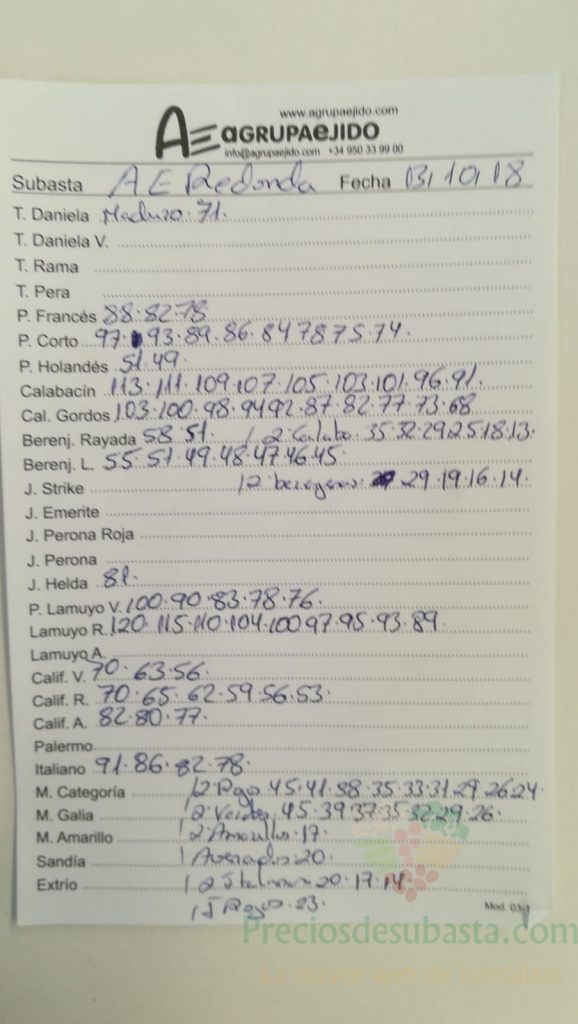 www.agrupaejido.com
AE AGRUPAEJIDO
info@agrupaejido.com +34 950 33 99 00
Subasta AE Redonda Fecha 13/10/18
T. Daniela Maduro 71.
T. Daniela V.
T. Rama
T. Pera
P. Francés 88.82.78
P. Corto 97. 93.89.86.84 78 75.74.
P. Holandés 51.49.
Calabacín 113.111.109.107.105.103.101.96.91.
Cal. Gordos 103.100.98.94 92.87.82.77.73.68
Berenj. Rayada 58.51. / 2ª Calaba. 35.32.29.25.18.13.
Berenj. L. 55.51.49.48.47.46.45.
J. Strike / 2ª berenjena. 29.19.16.14.
J. Emerite
J. Perona Roja
J. Perona
J. Helda 81.
P. Lamuyo V. 100.90.83.78.76.
Lamuyo R. 120.115.110.104.100 97.95.93.89.
Lamuyo A.
Calif. V. 70.63.56.
Calif. R. 70.65.62.59.56.53.
Calif. A. 82.80.77.
Palermo
Italiano 91.86.82.78.
M. Categoría / 2ª Rojo 45.41.38.35.33.31.29.26.24.
M. Galia / 2ª Verdes 45.39.37.35.32.29.26.
M. Amarillo / 2ª Amarillo. 17.
Sandía / Asurcados 20.
Extrío / 2ª Italiano 20.17.14
/ J Rojo. 23.
Mod. 03
Preciosdesubasta.com
La mayor web de hortalizas